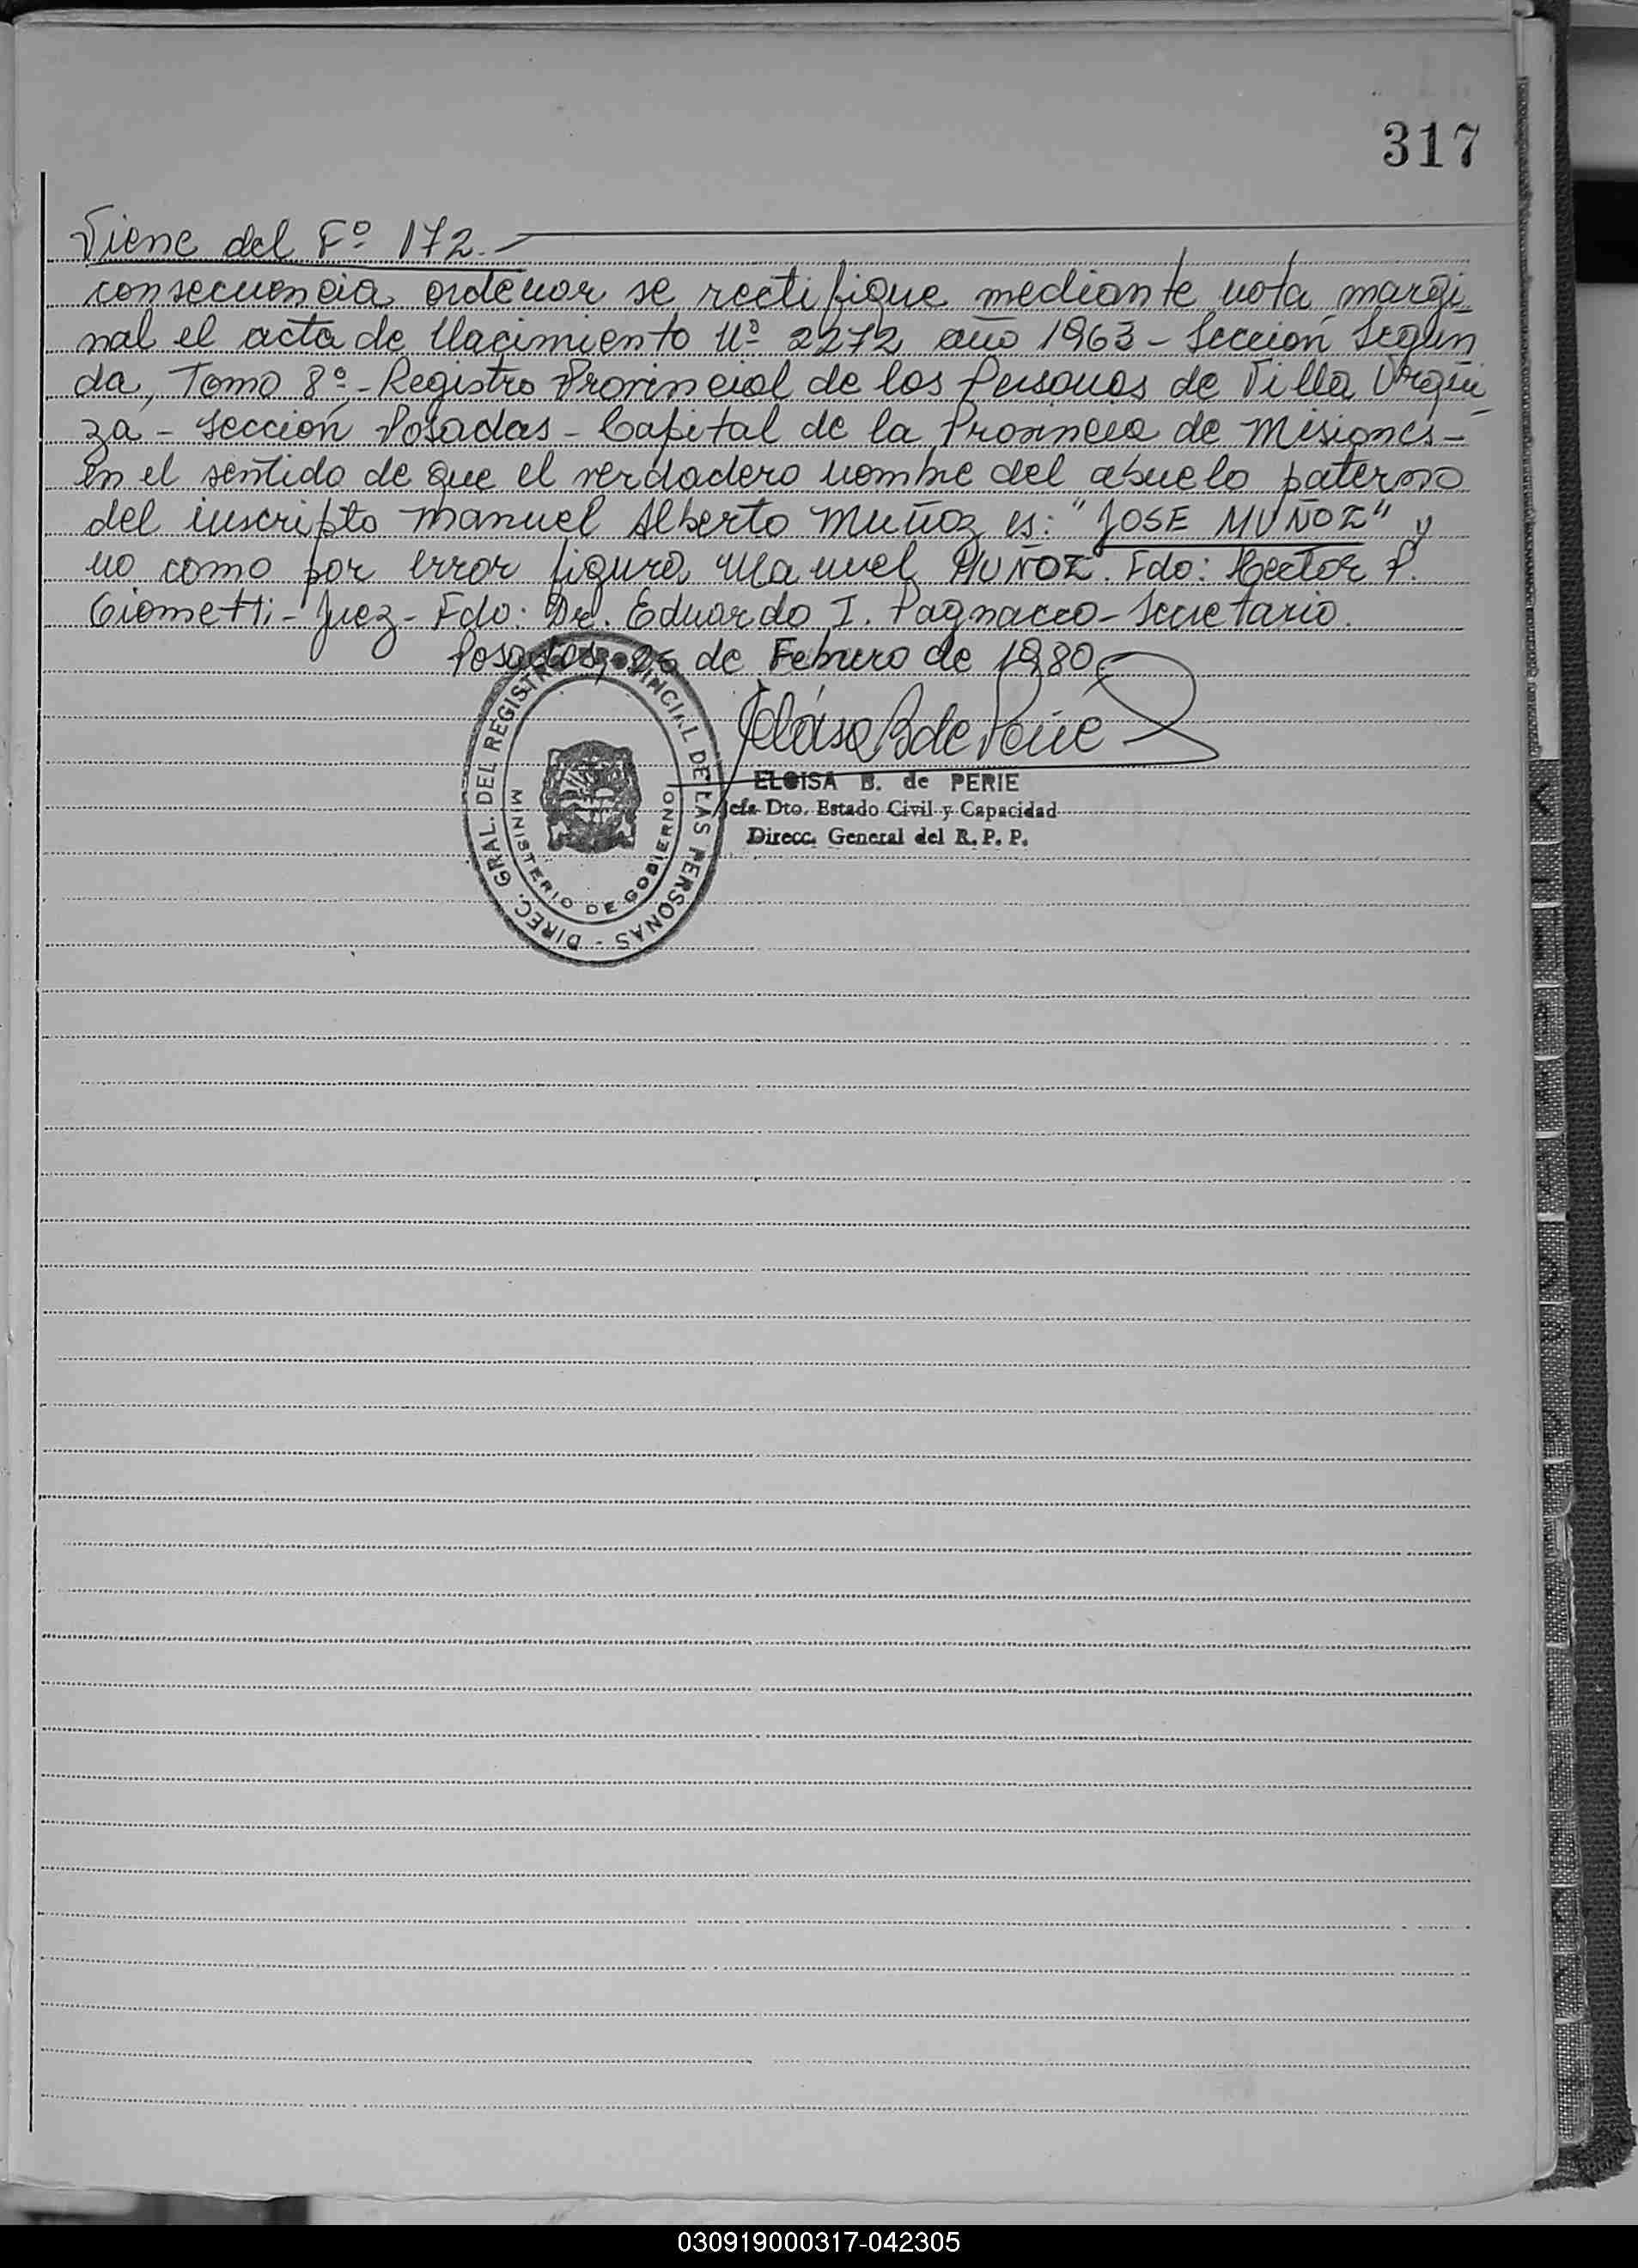 317
Viene del Fº 172.-
consecuencia ordenar se rectifique mediante nota margi
nal el acta de Nacimiento Nº 2272 año 1963 - Sección Segun
da, Tomo 8º - Registro Provincial de las Personas de Villa Urqui
za - Sección Posadas - Capital de la Provincia de Misiones -
en el sentido de que el verdadero nombre del abuelo paterno
del inscripto Manuel Alberto Muñoz es: "JOSE MUÑOZ" y
no como por error figura Manuel MUÑOZ. Fdo: Hector P.
Giometti - Juez - Fdo: Dr. Eduardo I. Pagnacco - Secretario.
Posadas, 26 de Febrero de 1980
Eloisa B de Perié
ELOISA B. de PERIE
Jefa Dto. Estado Civil y Capacidad
Direcc. General del R. P. P.
DIREC. GRAL. DEL REGISTRO PROVINCIAL DE LAS PERSONAS -
MINISTERIO DE GOBIERNO
030919000317-042305